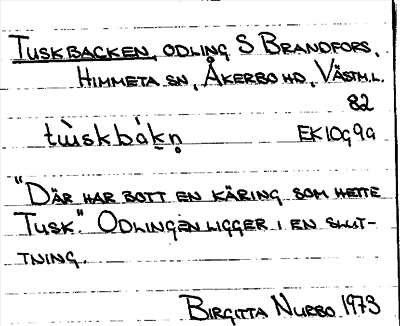 TUSKBACKEN, ODLING S BRANDFORS,
HIMMETA SN, ÅKERBO HD, VÄSTM.L.
82
tẁskbàkn̥ EK10g9a
"DÄR HAR BOTT EN KÄRING SOM HETTE
TUSK." ODLINGEN LIGGER I EN SLUT-
TNING.
BIRGITTA NURBO 1973